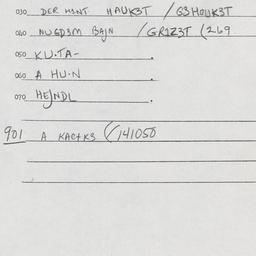 030 DER H3NT HAUK3T / G3HOUK3T
060 NUGD3M BAJN / GR1Z3T (269
050 KU.TA-
060 A HU.N
070 HEJNDL
901 A KAC+K3 (/141050